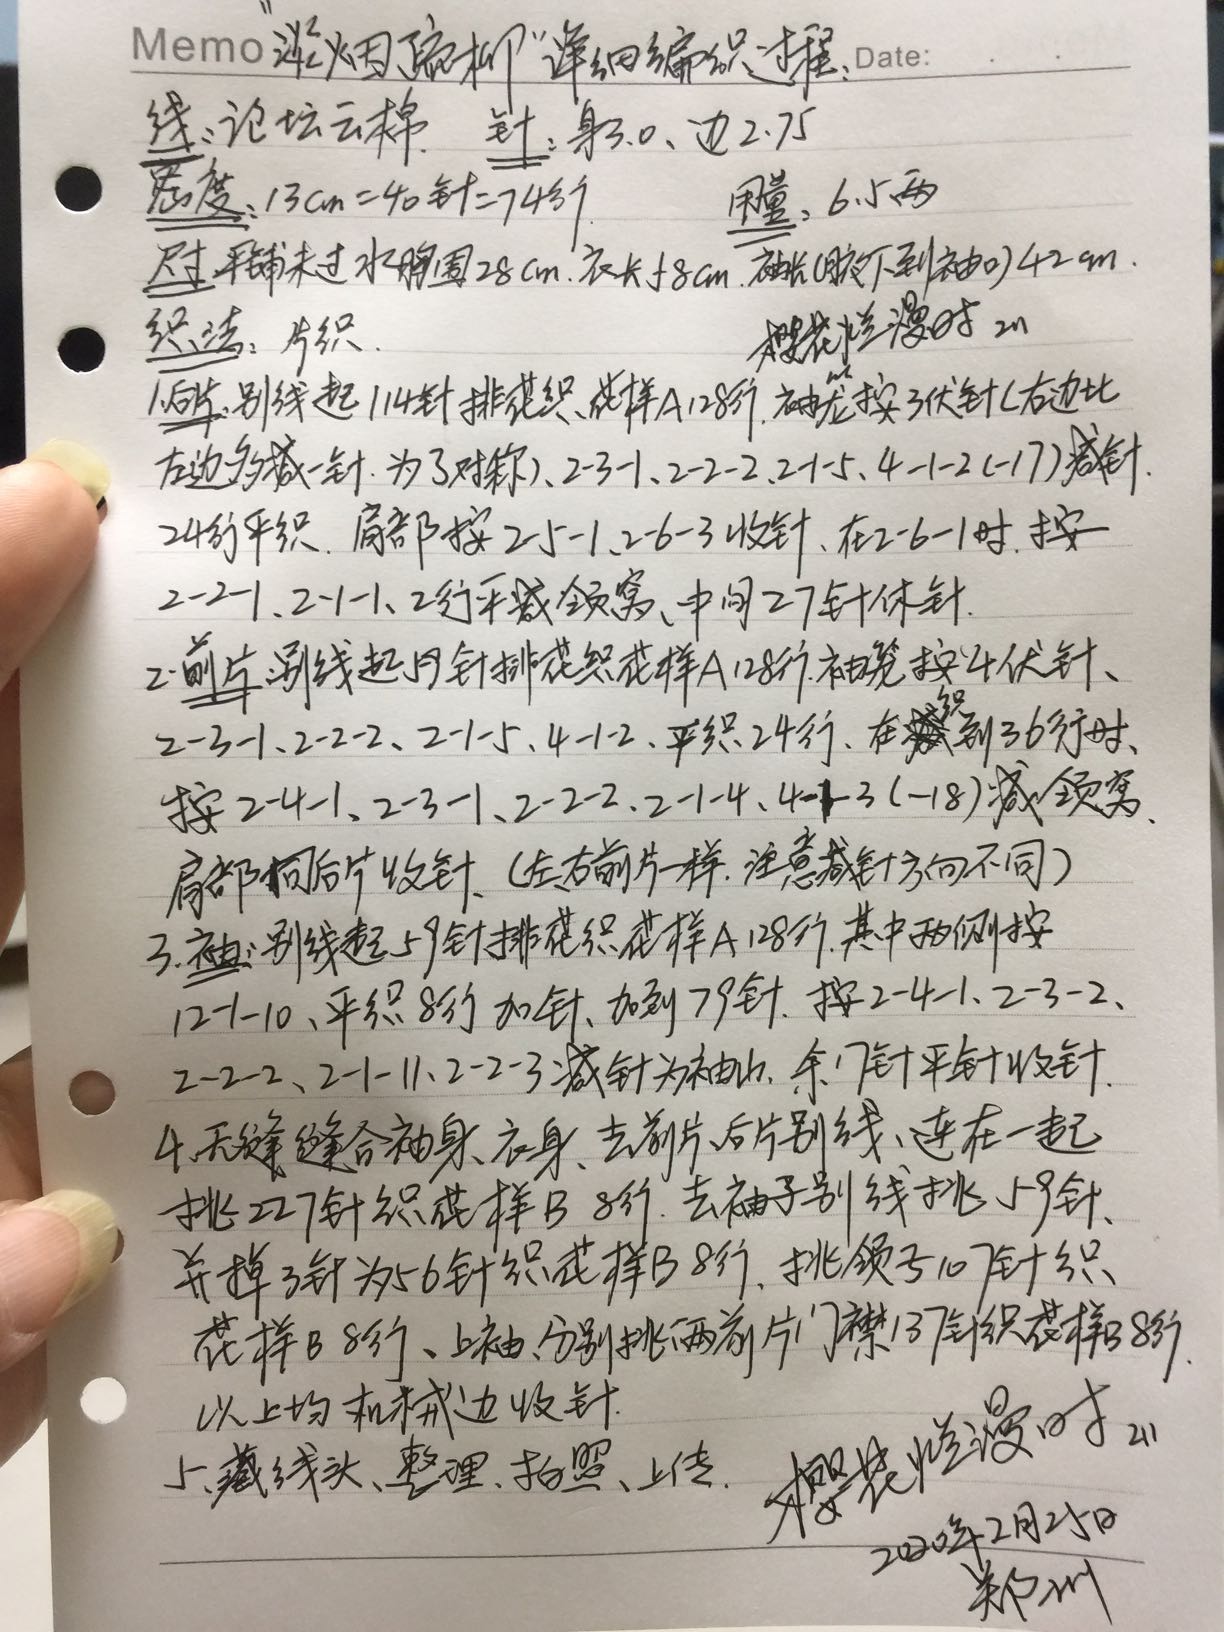 Memo "淡烟疏柳"详细编织过程: Date:
线:论坛云棉. 针:身3.0、边2.75
密度:13cm=40针=74行. 用量:6.5两
尺寸:平铺未过水胸围28cm.衣长58cm.袖长(腋下到袖口)42cm.
织法:片织. 樱花烂漫时211
1.后片:别线起114针排花织花样A128行.袖笼按3伏针(右边比
左边多减一针.为了对称)、2-3-1、2-2-2、2-1-5、4-1-2(-17)减针.
24行平织.肩部按2-5-1、2-6-3收针、在2-6-1时.按
2-2-1、2-1-1、2行平减领窝、中间27针休针.
2.前片:别线起59针排花织花样A128行.袖笼按4伏针、
2-3-1、2-2-2、2-1-5、4-1-2、平织24行、在织到36行时、
按2-4-1、2-3-1、2-2-2、2-1-4、4-1-3(-18)减领窝、
肩部同后片收针、(左右前片一样.注意减针方向不同)
3.袖:别线起59针排花织花样A128行.其中两侧按
12-1-10、平织8行加针、加到79针.按2-4-1、2-3-2、
2-2-2、2-1-11、2-2-3减针为袖山、余17针平针收针.
4.无缝缝合袖身、衣身、去前片、后片别线、连在一起
挑227针织花样B 8行.去袖子别线挑59针、
并掉3针为56针织花样B8行、挑领子107针织
花样B 8行、上袖、分别挑两前片门襟137针织花样B8行.
以上均机械边收针.
5.藏线头、整理、拍照、上传.
樱花烂漫时211
2020年2月25日
郑州